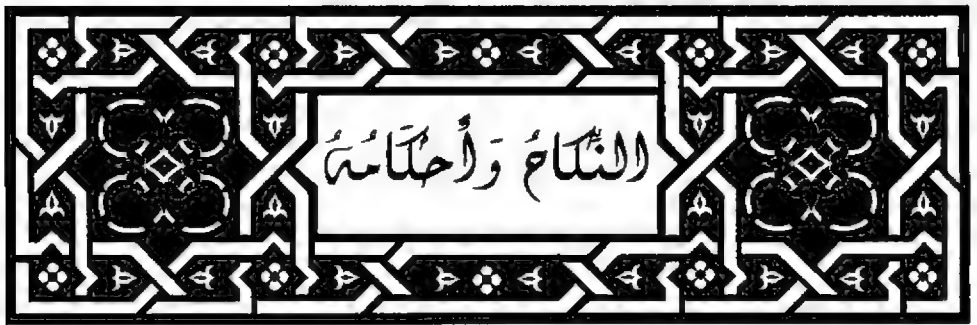 النِّكَاحُ وَأَحْكَامُهُ